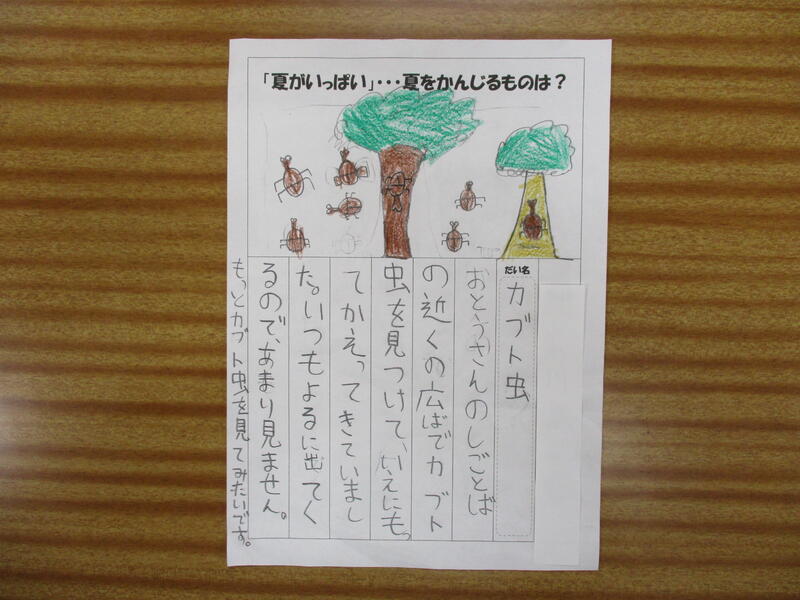 「夏がいっぱい」・・・夏をかんじるものは？
だい名
カブト虫
おとうさんのしごとば
の近くの広ばでカブト
虫を見つけて、いえにもっ
てかえってきていまし
た。いつもよるに出てく
るので、あまり見ません。
もっとカブト虫を見てみたいです。